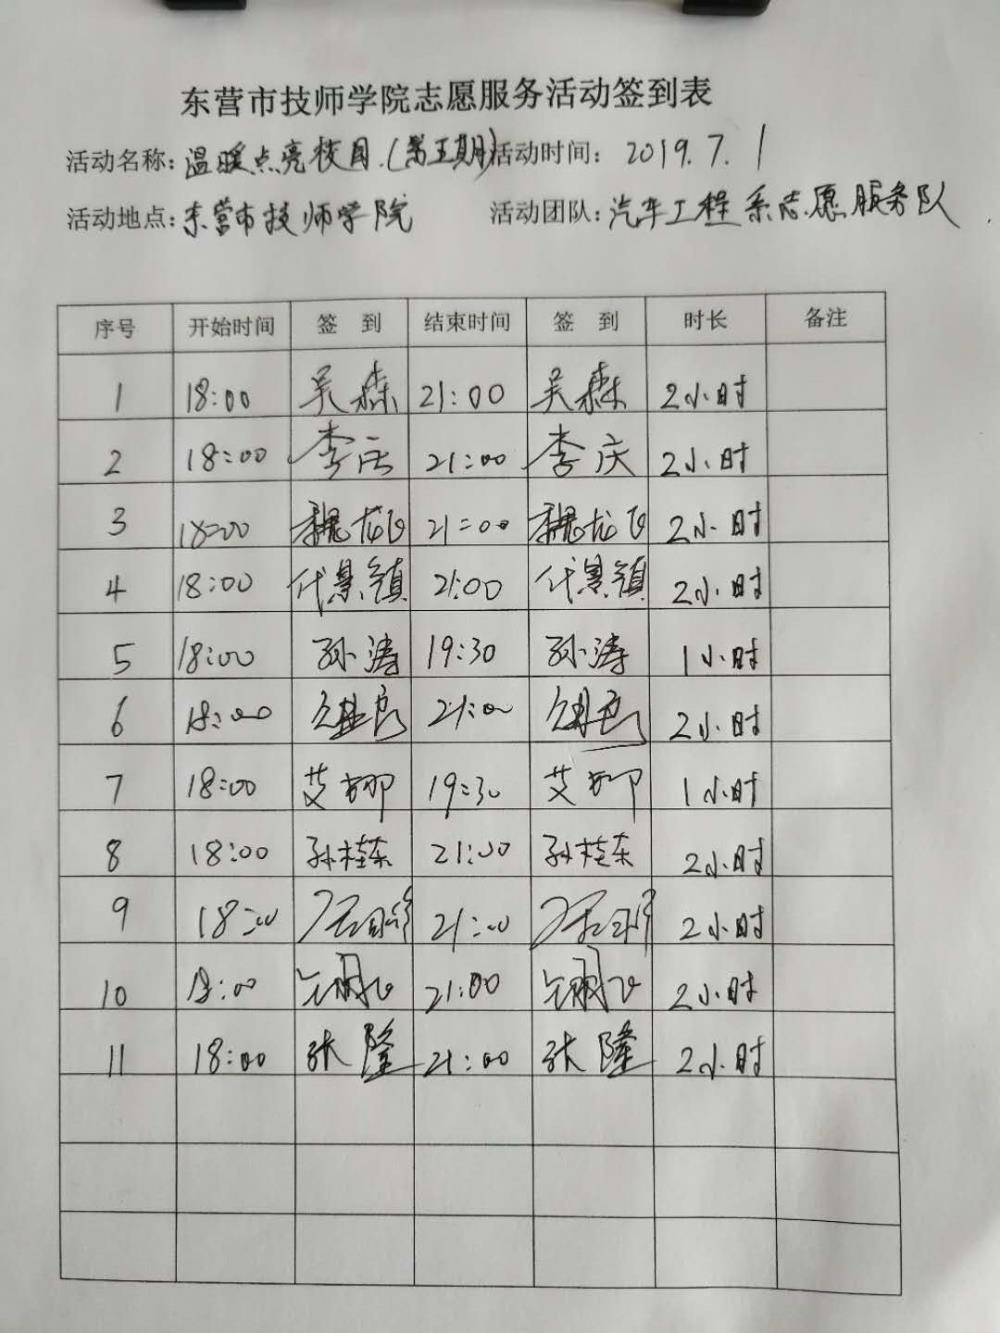 东营市技师学院志愿服务活动签到表
活动名称：温暖点亮校园.(第五期) 活动时间：2019.7.1
活动地点：东营市技师学院 活动团队：汽车工程系志愿服务队
序号 开始时间 签 到 结束时间 签 到 时长 备注
1 18:00 吴森 21:00 吴森 2小时
2 18:00 李庆 21:00 李庆 2小时
3 18:00 魏龙飞 21:00 魏龙飞 2小时
4 18:00 代景镇 21:00 代景镇 2小时
5 18:00 孙涛 19:30 孙涛 1小时
6 18:00 21:00 2小时
7 18:00 艾娜 19:30 艾娜 1小时
8 18:00 孙桂东 21:00 孙桂东 2小时
9 18:00 21:00 2小时
10 18:00 21:00 2小时
11 18:00 张隆 21:00 张隆 2小时